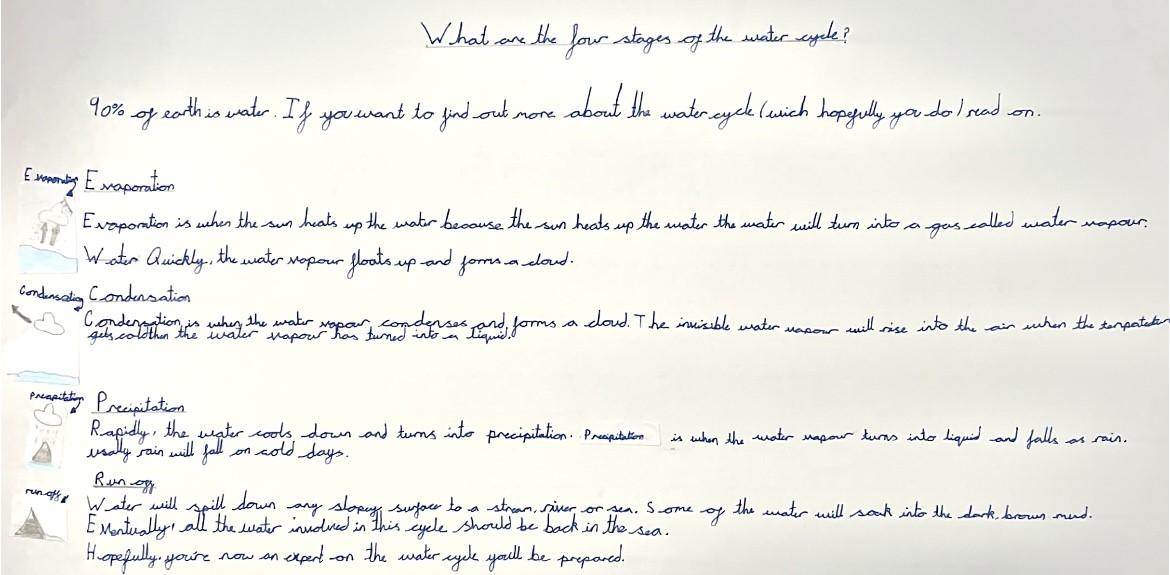 What are the four stages of the water cycle?
90% of earth is water. If you want to find out more about the water cycle (wich hopefully you do) read on.
Evaporating
Evaporation
Evaporation is when the sun heats up the water because the sun heats up the water the water will turn into a gas called water vapour.
Water Quickly, the water vapour floats up and forms a cloud.
Condensating
Condensation
Condensation is when the water vapour condenses and forms a cloud. The invisible water vapour will rise into the air when the
gets cold then the water vapour has turned into a liquid.
Precipitation
Rapidly, the water cools down and turns into precipitation. Precipitation is when the water vapour turns into liquid and falls as rain.
usally rain will fall on cold days.
Run off
run off
Water will spill down any slopey surface to a stream, river or sea. Some of the water will soak into the dark, brown mud.
Eventually, all the water involved in this cycle should be back in the sea.
Hopefully, you're now an expert on the water cycle you'll be prepared.